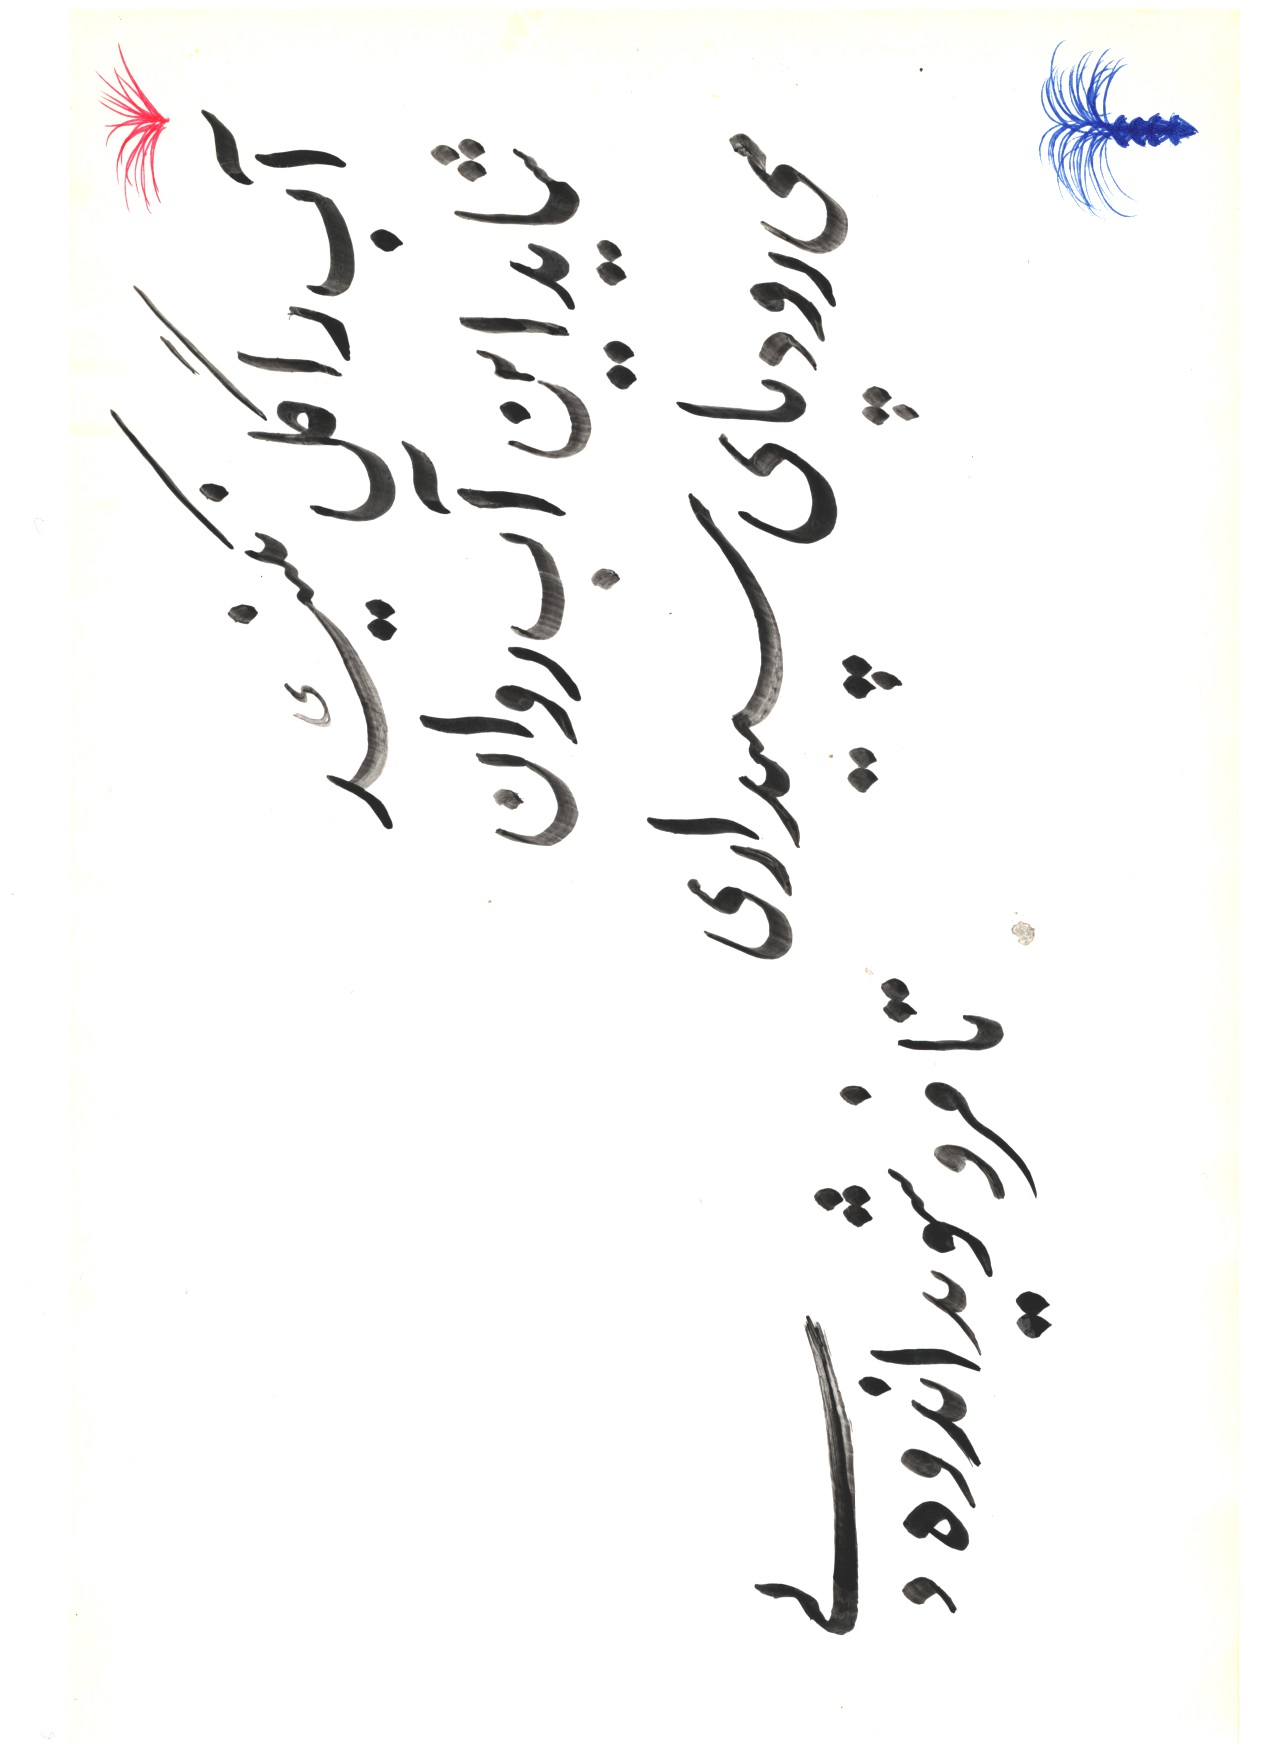 آب را گل نکنید
شاید این آب روان
می رود پای سپیداری
تا فرو شوید اندوه دلی